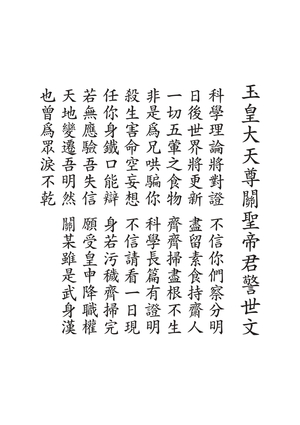 玉皇大天尊關聖帝君警世文
科學理論將對證 不信你們察分明
日後世界將更新 盡留素食持齋人
一切五葷之食物 齊齊掃盡根不生
非是爲兄哄騙你 科學長篇有證明
殺生害命空妄想 不信請看一日現
任你身鐵口能辯 身若污穢齊掃完
若無應驗吾失信 願受皇申降職權
天地變遷吾明然 關某雖是武身漢
也曾爲眾淚不乾